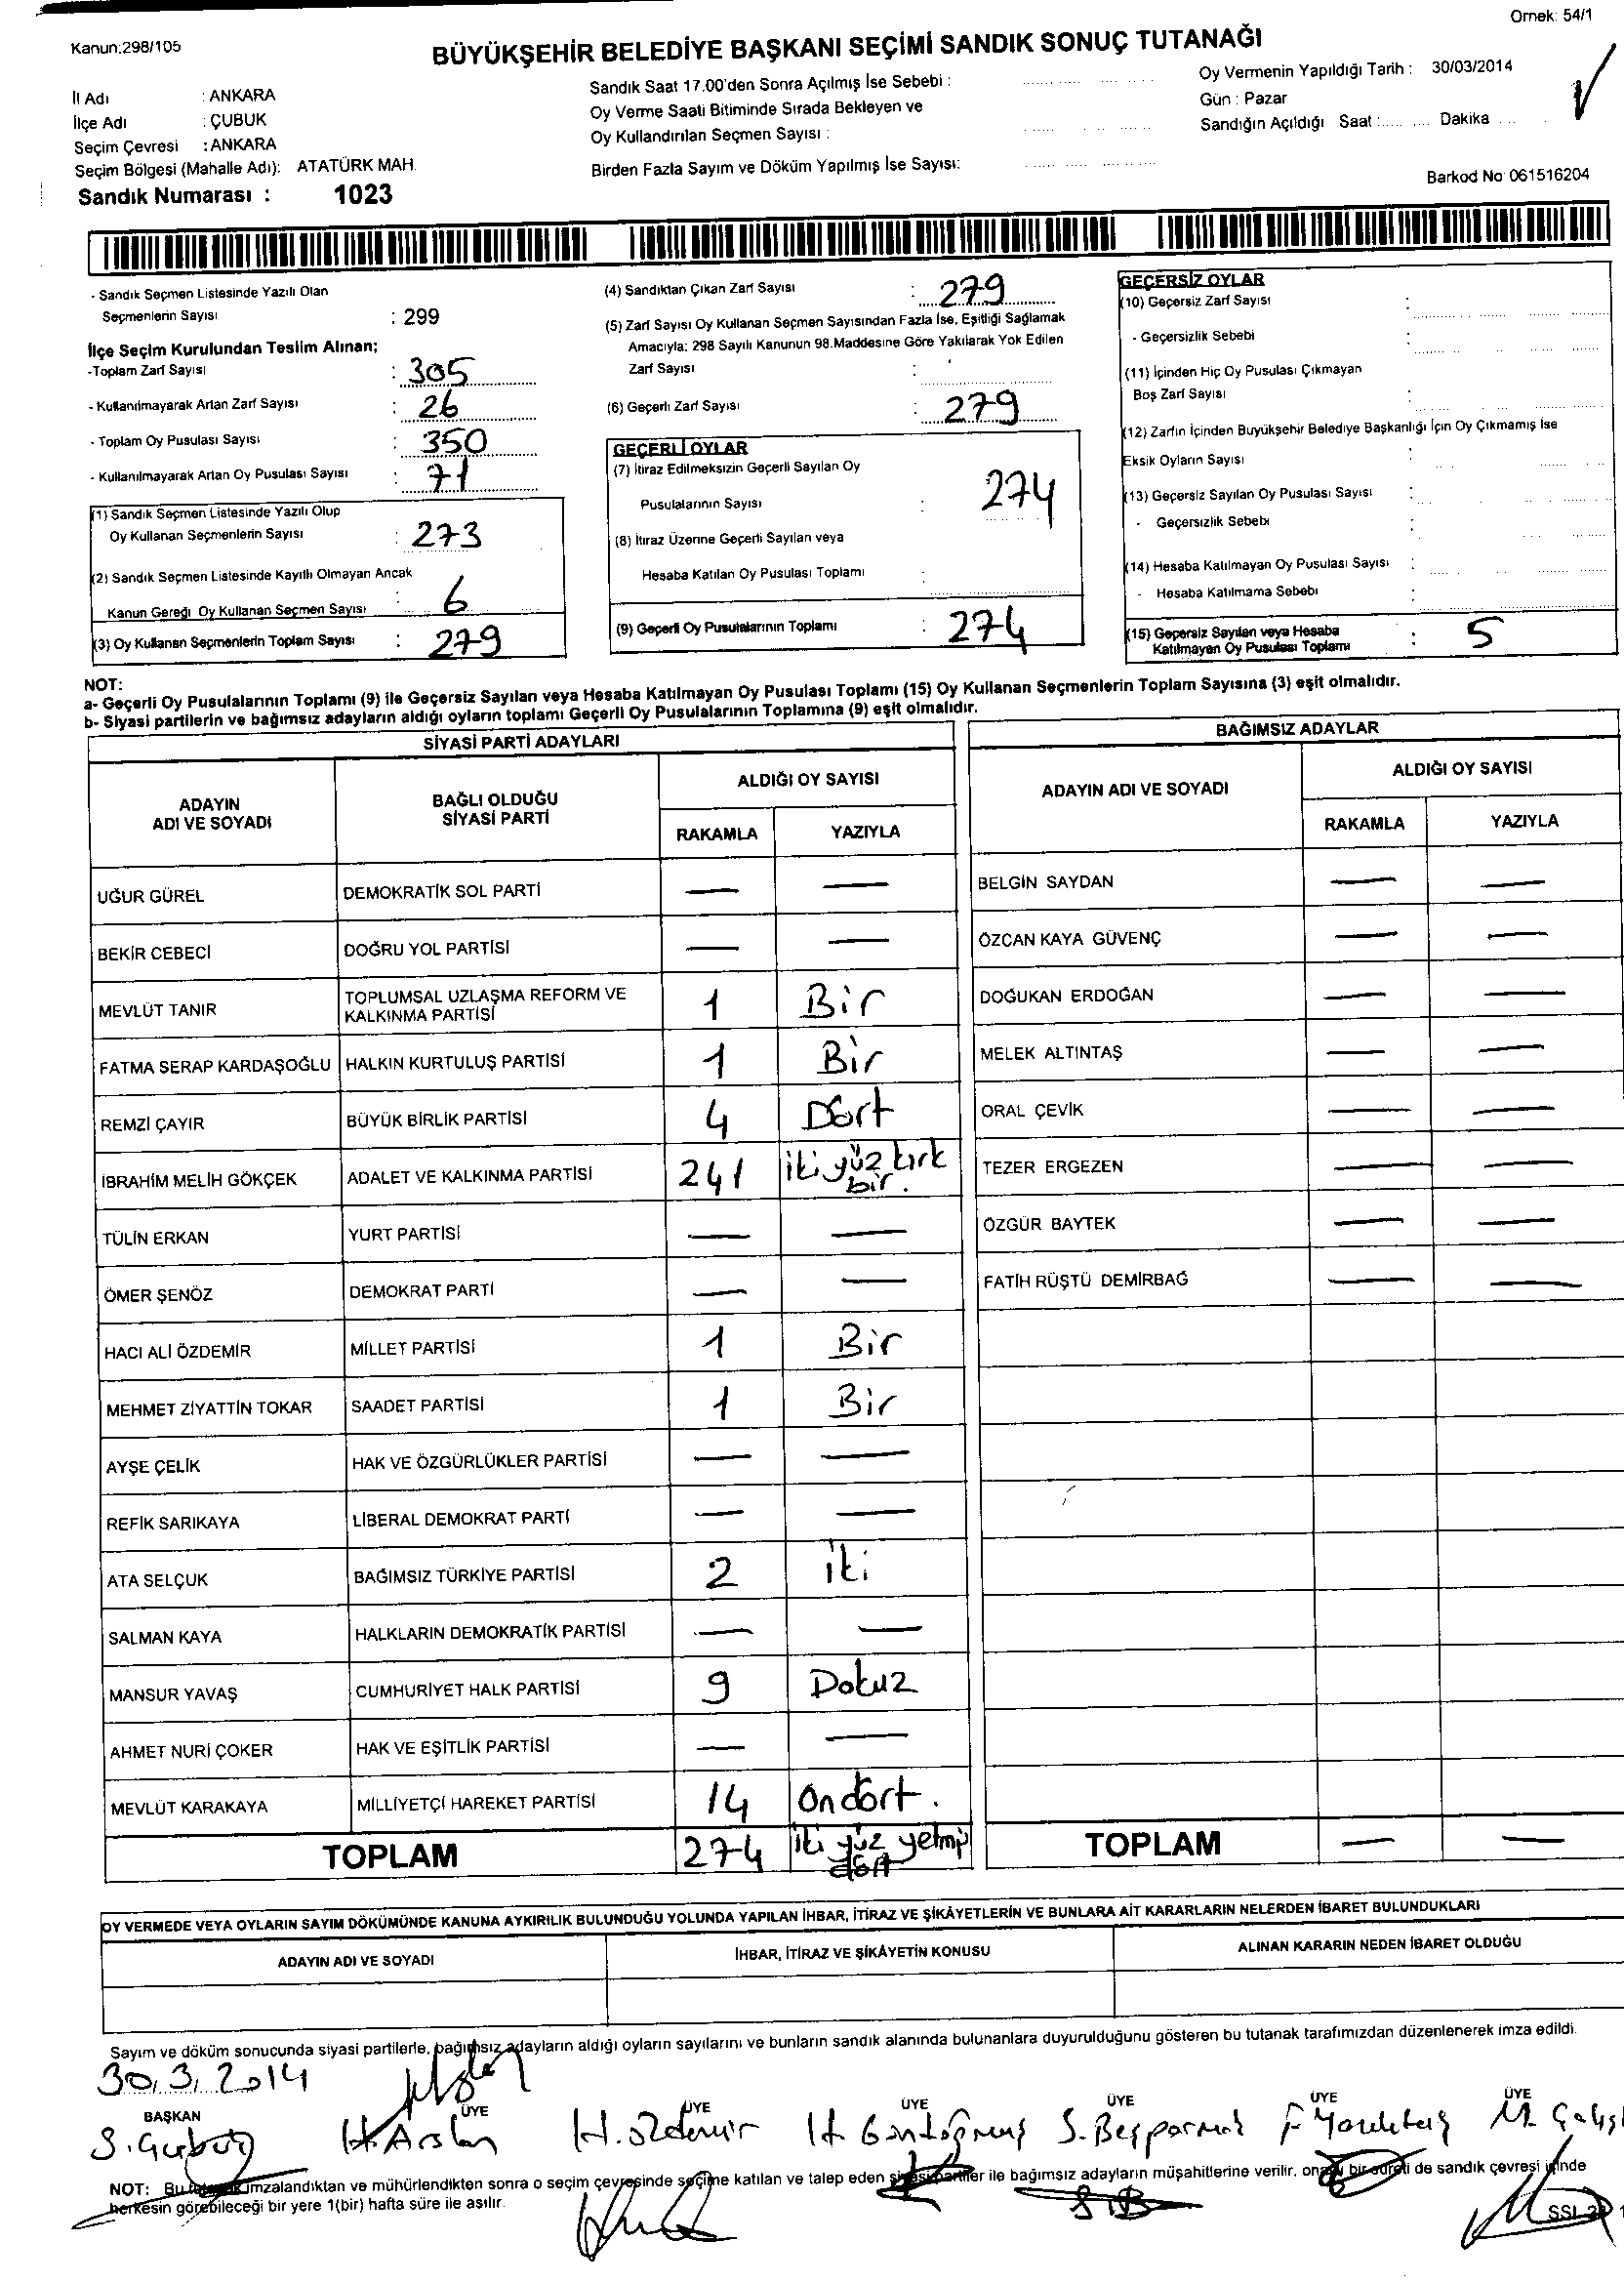 Örnek: 54/1
Kanun:298/105
BÜYÜKŞEHİR BELEDİYE BAŞKANI SEÇİMİ SANDIK SONUÇ TUTANAĞI
İl Adı : ANKARA
İlçe Adı : ÇUBUK
Seçim Çevresi : ANKARA
Seçim Bölgesi (Mahalle Adı): ATATÜRK MAH.
Sandık Numarası : 1023
Sandık Saat 17.00'den Sonra Açılmış İse Sebebi :
Oy Verme Saati Bitiminde Sırada Bekleyen ve
Oy Kullandırılan Seçmen Sayısı :
Birden Fazla Sayım ve Döküm Yapılmış İse Sayısı:
Oy Vermenin Yapıldığı Tarih : 30/03/2014
Gün : Pazar
Sandığın Açıldığı Saat : Dakika
Barkod No: 061516204
- Sandık Seçmen Listesinde Yazılı Olan
Seçmenlerin Sayısı : 299
İlçe Seçim Kurulundan Teslim Alınan;
-Toplam Zarf Sayısı : 305
- Kullanılmayarak Artan Zarf Sayısı : 26
- Toplam Oy Pusulası Sayısı : 350
- Kullanılmayarak Artan Oy Pusulası Sayısı : 71
(1) Sandık Seçmen Listesinde Yazılı Olup
Oy Kullanan Seçmenlerin Sayısı : 273
(2) Sandık Seçmen Listesinde Kayıtlı Olmayan Ancak
Kanun Gereği Oy Kullanan Seçmen Sayısı : 6
(3) Oy Kullanan Seçmenlerin Toplam Sayısı : 279
(4) Sandıktan Çıkan Zarf Sayısı : 279
(5) Zarf Sayısı Oy Kullanan Seçmen Sayısından Fazla İse, Eşitliği Sağlamak
Amacıyla; 298 Sayılı Kanunun 98.Maddesine Göre Yakılarak Yok Edilen
Zarf Sayısı :
(6) Geçerli Zarf Sayısı : 279
GEÇERLİ OYLAR
(7) İtiraz Edilmeksizin Geçerli Sayılan Oy
Pusulalarının Sayısı : 274
(8) İtiraz Üzerine Geçerli Sayılan veya
Hesaba Katılan Oy Pusulası Toplamı :
(9) Geçerli Oy Pusulalarının Toplamı : 274
GEÇERSİZ OYLAR
(10) Geçersiz Zarf Sayısı :
- Geçersizlik Sebebi :
(11) İçinden Hiç Oy Pusulası Çıkmayan
Boş Zarf Sayısı :
(12) Zarfın İçinden Büyükşehir Belediye Başkanlığı İçin Oy Çıkmamış İse
Eksik Oyların Sayısı :
(13) Geçersiz Sayılan Oy Pusulası Sayısı :
- Geçersizlik Sebebi :
(14) Hesaba Katılmayan Oy Pusulası Sayısı :
- Hesaba Katılmama Sebebi :
(15) Geçersiz Sayılan veya Hesaba
Katılmayan Oy Pusulası Toplamı : 5
NOT:
a- Geçerli Oy Pusulalarının Toplamı (9) ile Geçersiz Sayılan veya Hesaba Katılmayan Oy Pusulası Toplamı (15) Oy Kullanan Seçmenlerin Toplam Sayısına (3) eşit olmalıdır.
b- Siyasi partilerin ve bağımsız adayların aldığı oyların toplamı Geçerli Oy Pusulalarının Toplamına (9) eşit olmalıdır.
SİYASİ PARTİ ADAYLARI
ADAYIN ADI VE SOYADI BAĞLI OLDUĞU SİYASİ PARTİ ALDIĞI OY SAYISI
RAKAMLA YAZIYLA
UĞUR GÜREL DEMOKRATİK SOL PARTİ — —
BEKİR CEBECİ DOĞRU YOL PARTİSİ — —
MEVLÜT TANIR TOPLUMSAL UZLAŞMA REFORM VE KALKINMA PARTİSİ 1 Bir
FATMA SERAP KARDAŞOĞLU HALKIN KURTULUŞ PARTİSİ 1 Bir
REMZİ ÇAYIR BÜYÜK BİRLİK PARTİSİ 4 Dört
İBRAHİM MELİH GÖKÇEK ADALET VE KALKINMA PARTİSİ 241 iki yüz kırk bir.
TÜLİN ERKAN YURT PARTİSİ — —
ÖMER ŞENÖZ DEMOKRAT PARTİ — —
HACI ALİ ÖZDEMİR MİLLET PARTİSİ 1 Bir
MEHMET ZİYATTİN TOKAR SAADET PARTİSİ 1 Bir
AYŞE ÇELİK HAK VE ÖZGÜRLÜKLER PARTİSİ — —
REFİK SARIKAYA LİBERAL DEMOKRAT PARTİ — —
ATA SELÇUK BAĞIMSIZ TÜRKİYE PARTİSİ 2 iki
SALMAN KAYA HALKLARIN DEMOKRATİK PARTİSİ — —
MANSUR YAVAŞ CUMHURİYET HALK PARTİSİ 9 Dokuz
AHMET NURİ ÇOKER HAK VE EŞİTLİK PARTİSİ — —
MEVLÜT KARAKAYA MİLLİYETÇİ HAREKET PARTİSİ 14 Ondört.
TOPLAM 274 iki yüz yetmiş dört
BAĞIMSIZ ADAYLAR
ADAYIN ADI VE SOYADI ALDIĞI OY SAYISI
RAKAMLA YAZIYLA
BELGİN SAYDAN — —
ÖZCAN KAYA GÜVENÇ — —
DOĞUKAN ERDOĞAN — —
MELEK ALTINTAŞ — —
ORAL ÇEVİK — —
TEZER ERGEZEN — —
ÖZGÜR BAYTEK — —
FATİH RÜŞTÜ DEMİRBAĞ — —
TOPLAM — —
OY VERMEDE VEYA OYLARIN SAYIM DÖKÜMÜNDE KANUNA AYKIRILIK BULUNDUĞU YOLUNDA YAPILAN İHBAR, İTİRAZ VE ŞİKÂYETLERİN VE BUNLARA AİT KARARLARIN NELERDEN İBARET BULUNDUKLARI
ADAYIN ADI VE SOYADI İHBAR, İTİRAZ VE ŞİKÂYETİN KONUSU ALINAN KARARIN NEDEN İBARET OLDUĞU
Sayım ve döküm sonucunda siyasi partilerle, bağımsız adayların aldığı oyların sayılarını ve bunların sandık alanında bulunanlara duyurulduğunu gösteren bu tutanak tarafımızdan düzenlenerek imza edildi.
30.3.2014
BAŞKAN ÜYE ÜYE ÜYE ÜYE ÜYE ÜYE
H. Arslan H. Özdemir
NOT: Bu tutanak imzalandıktan ve mühürlendikten sonra o seçim çevresinde seçime katılan ve talep eden siyasi partiler ile bağımsız adayların müşahitlerine verilir, onaylı bir sureti de sandık çevresi içinde
herkesin görebileceği bir yere 1(bir) hafta süre ile asılır.